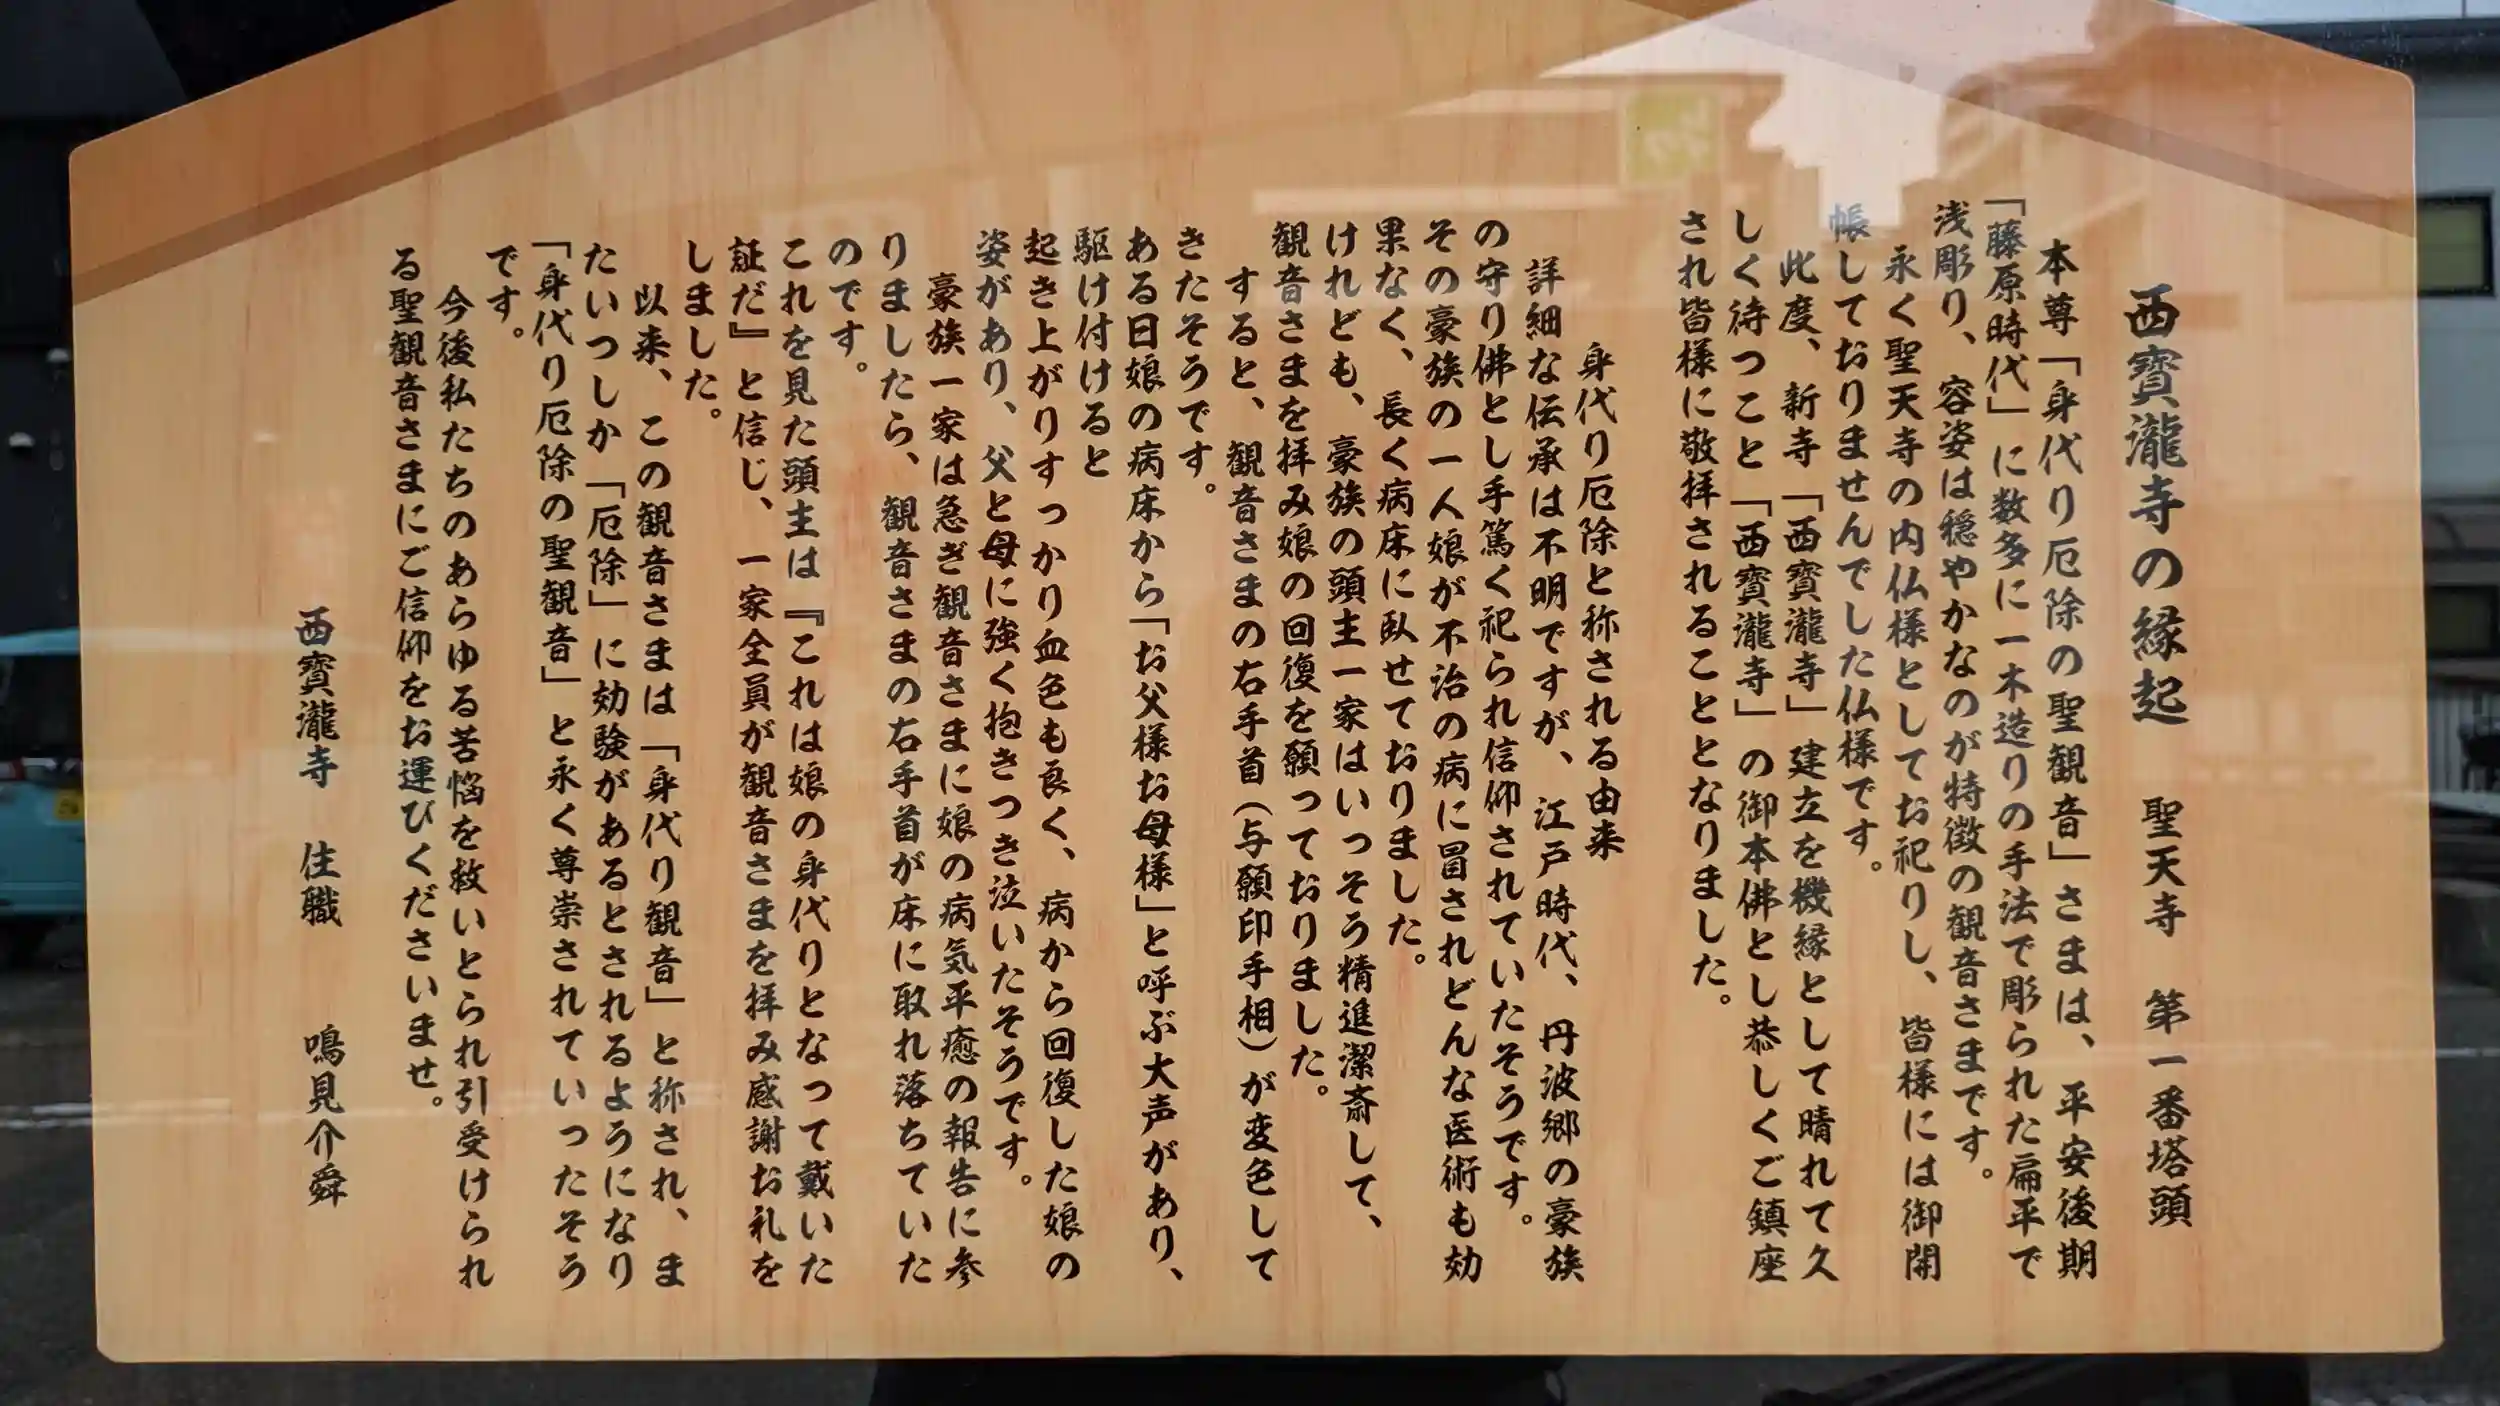 西寶瀧寺の縁起 聖天寺 第一番塔頭
本尊「身代り厄除の聖観音」さまは、平安後期
「藤原時代」に数多に一木造りの手法で彫られた扁平で
浅彫り、容姿は穏やかなのが特徴の観音さまです。
永く聖天寺の内仏様としてお祀りし、皆様には御開
帳しておりませんでした仏様です。
此度、新寺「西寶瀧寺」建立を機縁として晴れて久
しく待つこと「西寶瀧寺」の御本佛とし恭しくご鎮座
され皆様に敬拝されることとなりました。
身代り厄除と称される由来
詳細な伝承は不明ですが、江戸時代、丹波郷の豪族
の守り佛とし手篤く祀られ信仰されていたそうです。
その豪族の一人娘が不治の病に冒されどんな医術も効
果なく、長く病床に臥せておりました。
けれども、豪族の頭主一家はいっそう精進潔斎して、
観音さまを拝み娘の回復を願っておりました。
すると、観音さまの右手首(与願印手相)が変色して
きたそうです。
ある日娘の病床から「お父様お母様」と呼ぶ大声があり、
駆け付けると
起き上がりすっかり血色も良く、病から回復した娘の
姿があり、父と母に強く抱きつき泣いたそうです。
豪族一家は急ぎ観音さまに娘の病気平癒の報告に参
りましたら、観音さまの右手首が床に取れ落ちていた
のです。
これを見た頭主は『これは娘の身代りとなって戴いた
証だ』と信じ、一家全員が観音さまを拝み感謝お礼を
しました。
以来、この観音さまは「身代り観音」と称され、ま
たいつしか「厄除」に効験があるとされるようになり
「身代り厄除の聖観音」と永く尊崇されていったそう
です。
今後私たちのあらゆる苦悩を救いとられ引受けられ
る聖観音さまにご信仰をお運びくださいませ。
西寶瀧寺 住職 鳴見介舜